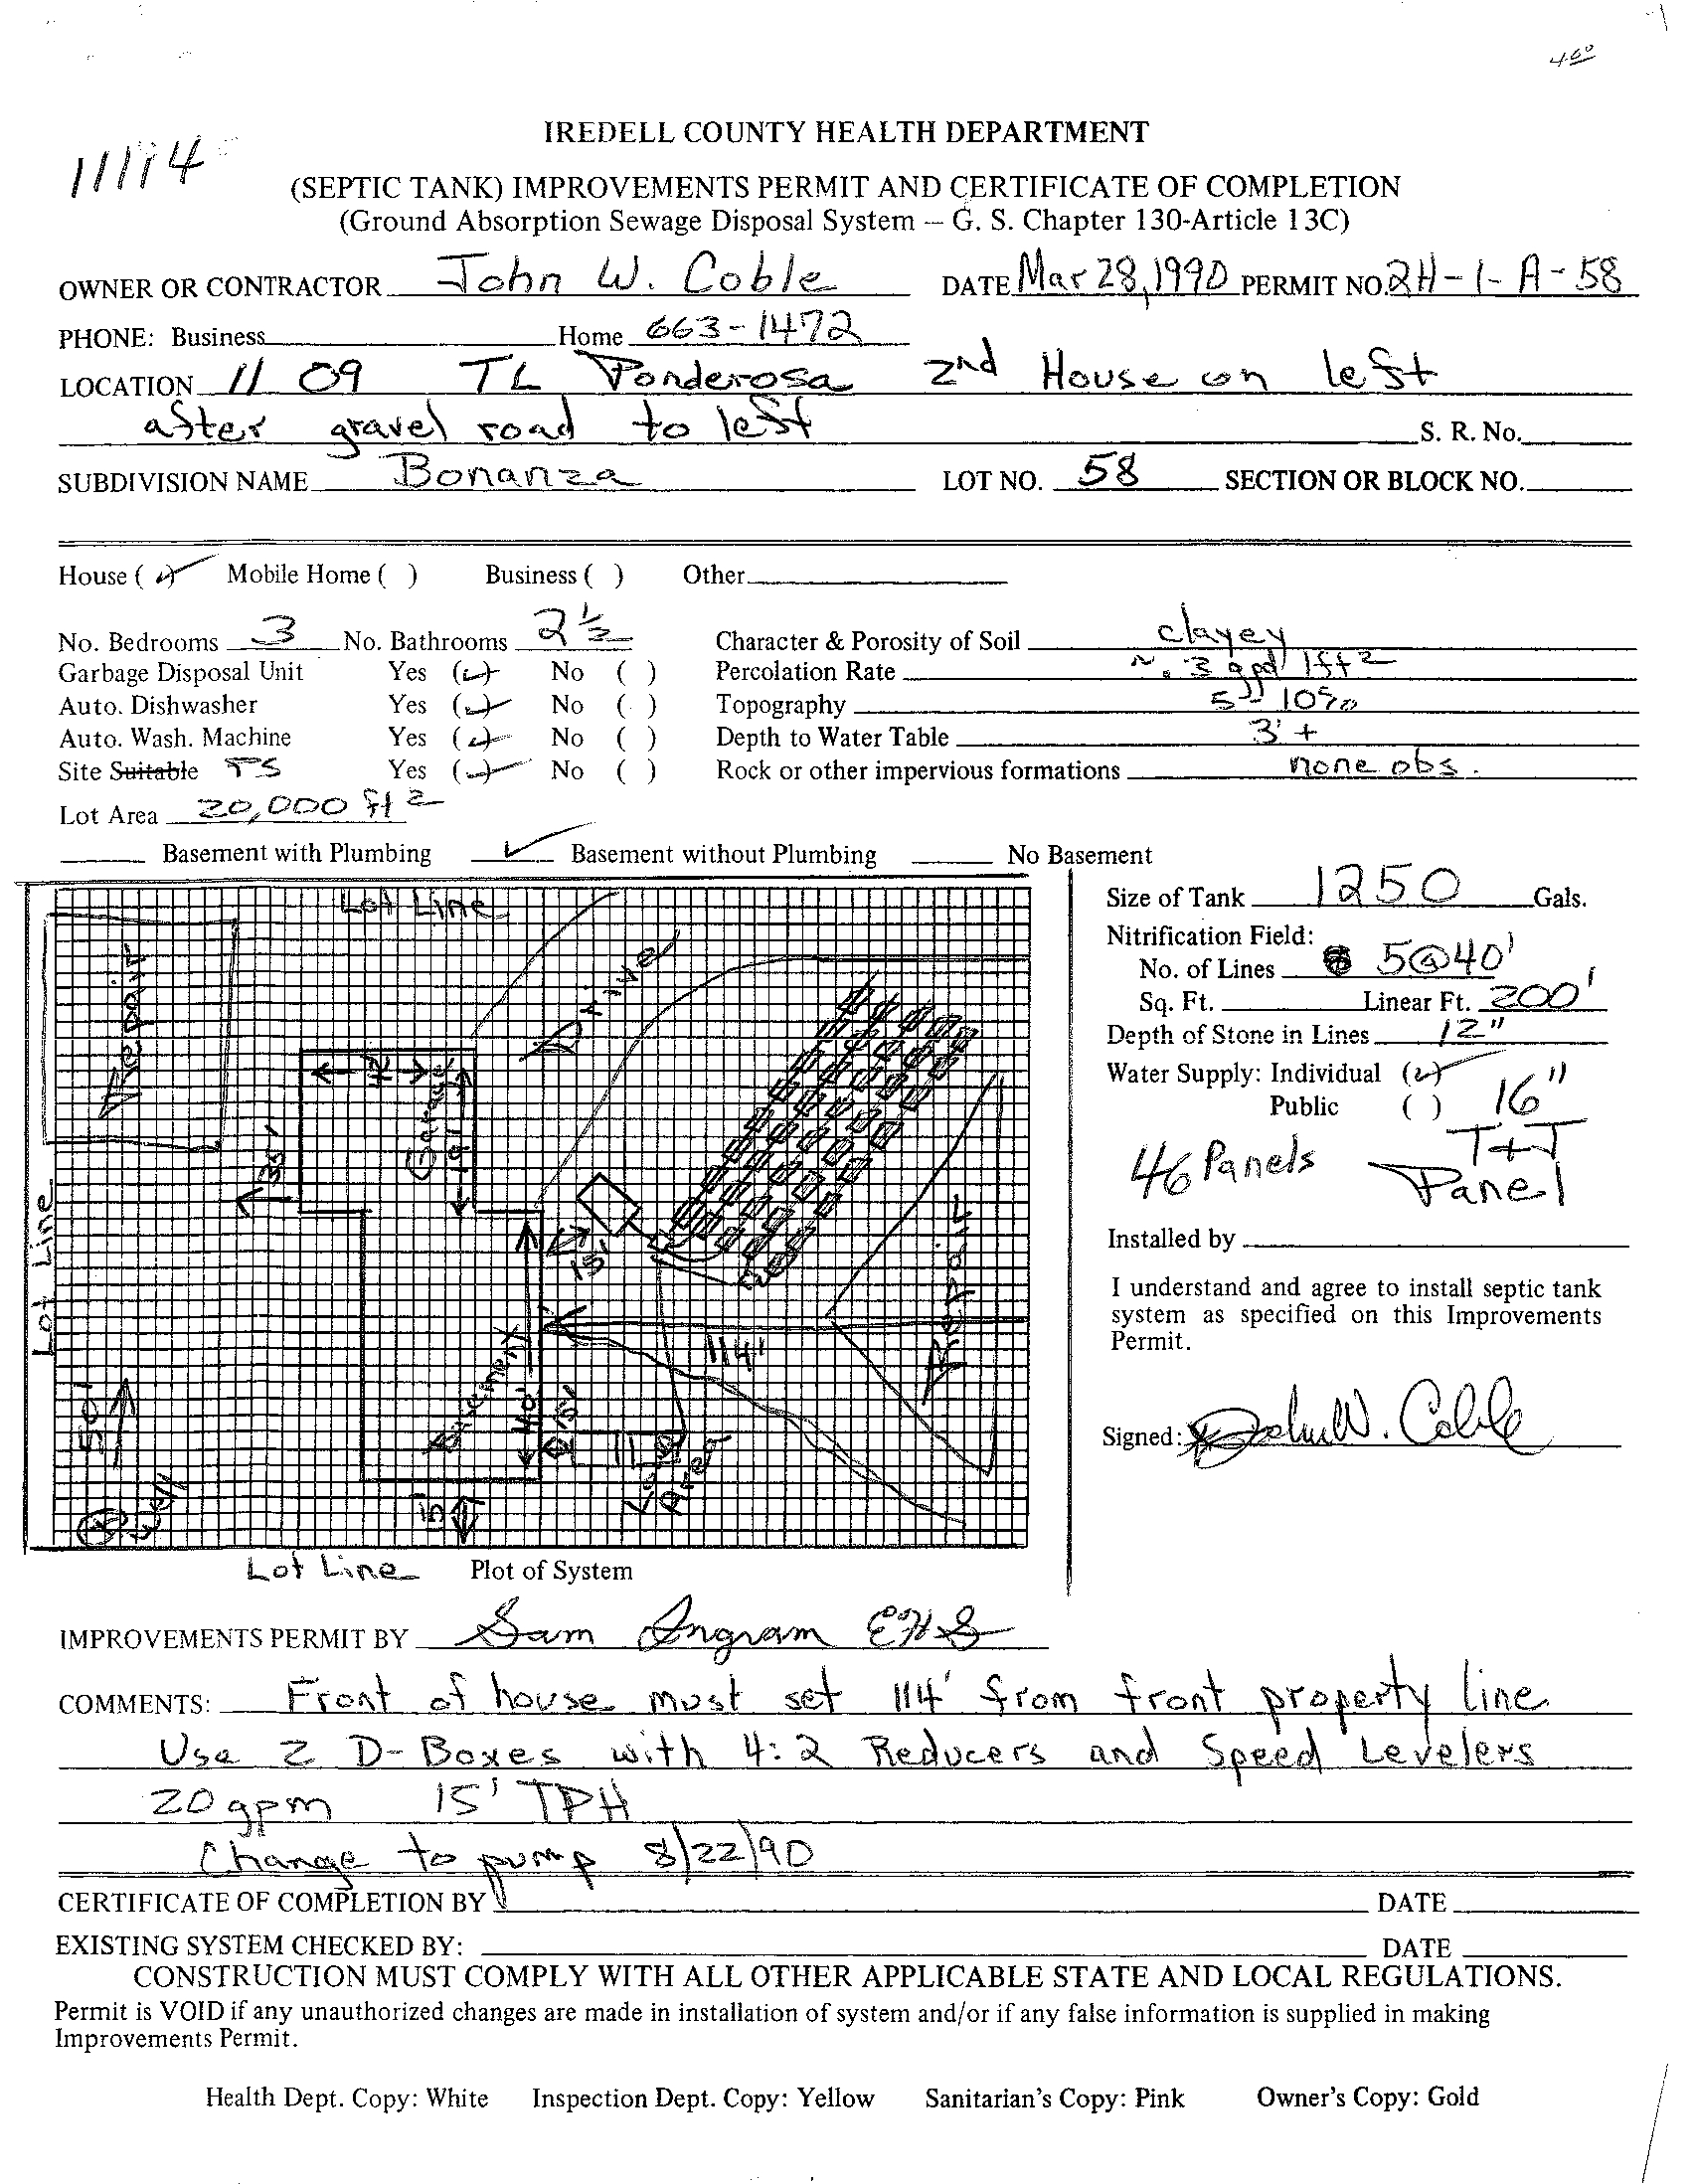 4.60
IREDELL COUNTY HEALTH DEPARTMENT
11114
(SEPTIC TANK) IMPROVEMENTS PERMIT AND CERTIFICATE OF COMPLETION
(Ground Absorption Sewage Disposal System – G. S. Chapter 130-Article 13C)
OWNER OR CONTRACTOR John W. Coble DATE Mar 28, 1990 PERMIT NO. 2H-1-A-58
PHONE: Business Home 663-1472
LOCATION 11 09 TL Ponderosa 2nd House on left
after gravel road to left S. R. No.
SUBDIVISION NAME Bonanza LOT NO. 58 SECTION OR BLOCK NO.
House (✓) Mobile Home ( ) Business ( ) Other
No. Bedrooms 3 No. Bathrooms 2 1/2 Character & Porosity of Soil clayey
Garbage Disposal Unit Yes (✓) No ( ) Percolation Rate ~ .3 gpd/ft2
Auto. Dishwasher Yes (✓) No ( ) Topography 5-10%
Auto. Wash. Machine Yes (✓) No ( ) Depth to Water Table 3' +
Site Suitable PS Yes (✓) No ( ) Rock or other impervious formations none obs.
Lot Area 20,000 ft2
Basement with Plumbing ✓ Basement without Plumbing No Basement
Lot Line
Repair
Drive
Garage
19'
35'
Lot Line
15'
Repair
114'
Basement
40'
15'
50'
Well
15'
Area
Lot Line Plot of System
Size of Tank 1250 Gals.
Nitrification Field:
No. of Lines 5@40'
Sq. Ft. Linear Ft. 200'
Depth of Stone in Lines 12"
Water Supply: Individual (✓)
Public ( ) 16"
46 Panels T+J
Panel
Installed by
I understand and agree to install septic tank
system as specified on this Improvements
Permit.
Signed: John W. Coble
IMPROVEMENTS PERMIT BY Sam Ingram EHS
COMMENTS: Front of house must set 114' from front property line
Use 2 D-Boxes with 4:2 Reducers and Speed Levelers
20 gpm 15' TPH
Change to pump 8/22/90
CERTIFICATE OF COMPLETION BY DATE
EXISTING SYSTEM CHECKED BY: DATE
CONSTRUCTION MUST COMPLY WITH ALL OTHER APPLICABLE STATE AND LOCAL REGULATIONS.
Permit is VOID if any unauthorized changes are made in installation of system and/or if any false information is supplied in making
Improvements Permit.
Health Dept. Copy: White Inspection Dept. Copy: Yellow Sanitarian's Copy: Pink Owner's Copy: Gold